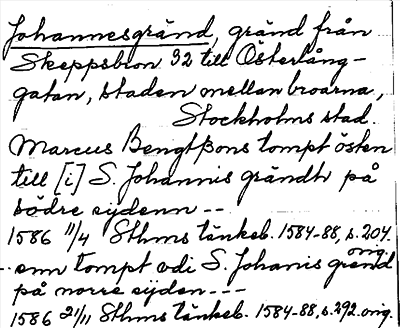 Johannesgränd, gränd från
Skeppsbron 32 till Österlång-
gatan, staden mellan broarna,
Stockholms stad.
Marcus Bengtßons tompt östen
till [i] S. Johannis grändh på
södre sydenn --
1586 11/4 Sthms tänkeb. 1584-88, s. 204. orig.
-- enn tompt vdi S. Johanis grend
på norre syden ---
1586 21/11 Sthms tänkeb. 1584-88, s. 292. orig.